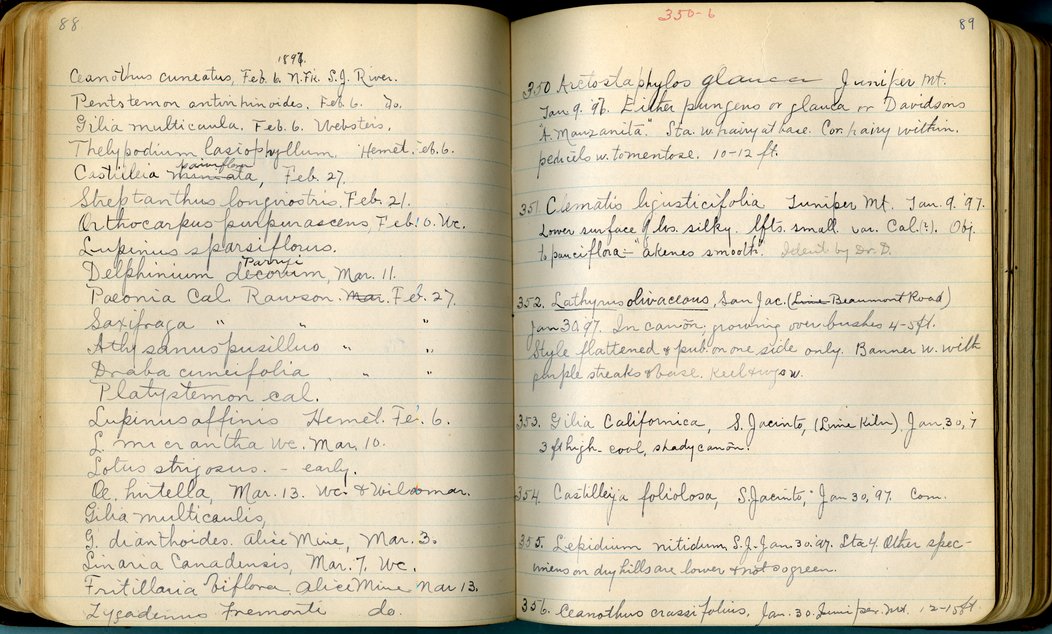 88
1896.
Ceanothus cuneatus, Feb. 6. N.Fk. S.J. River.
Pentstemon antirrhinoides. Feb. 6. do.
Gilia multicaula. Feb. 6. Websters.
Thelypodium lasiophyllum. Hemet. Feb. 6.
parviflora
Castilleia miniata, Feb. 27.
Streptanthus longirostris. Feb. 21.
Orthocarpus purpurascens, Feb. 10. Wc.
Lupinus sparsiflorus.
Parryi
Delphinium decorum, Mar. 11.
Paeonia Cal. Rawson. Mar. Feb. 27.
Saxifraga " " "
Athysanus pusillus " "
Draba cuneifolia " "
Platystemon cal.
Lupinus affinis Hemet. Feb. 6.
L. micrantha Wc. Mar. 10.
Lotus strigosus. - early.
Oe. hirtella, Mar. 13. Wc. & Wildomar.
Gilia multicaulis,
G. dianthoides. Alice Mine, Mar. 3.
Linaria Canadensis, Mar. 7. Wc.
Fritillaria biflora. Alice Mine Mar 13.
Zygadenus Fremonti do.
350-6
89
350 Arctostaphylos glauca Juniper Mt.
Jan 9. '96. Either pungens or glauca or Davidsons
"A. Manzanita." Sta. w. hairy at base. Cor. hairy within.
pedicels w. tomentose. 10-12 ft.
351. Clematis ligusticifolia Juniper Mt. Jan. 9. '97.
Lower surface of lvs. silky. lfts. small var. Cal.(?). Obj.
to pauciflora - "akenes smooth". Ident. by Dr. D.
352. Lathyrus olivaceous, San Jac. (Lime Beaumont Road)
Jan 30. 97. In cañon, growing over bushes 4-5 ft.
Style flattened & pub. on one side only. Banner w. with
purple streaks & base. Keel & wgs w.
353. Gilia Californica, S. Jacinto, (Lime Kiln) Jan 30,
3 ft high - cool, shady cañon.
354. Castilleja foliolosa, S. Jacinto, Jan 30, '97. Com.
355. Lepidium nitidum S.J. Jan. 30. '97. Sta 4. Other spec-
imens on dry hills are lower & not so green.
356. Ceanothus crassifolius, Jan. 30. Juniper Mt. 12-15 ft